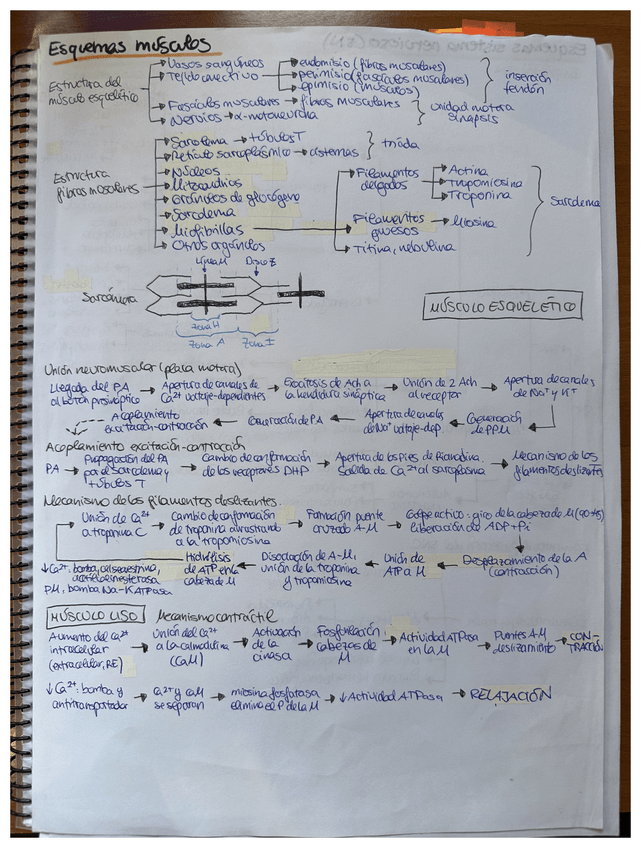 Esquemas músculos
Estructura del músculo esquelético
Vasos sanguíneos
Tejido conectivo → endomisio (fibras musculares)
perimisio (fascículos musculares)
epimisio (músculos)
inserción tendón
Fascículos musculares → fibras musculares
Nervios → α-motoneurona
unidad motora sinapsis
Estructura fibras musculares
Sarolema → túbulos T
Retículo sarcoplásmico → cisternas
tríada
Núcleos
Mitocondrias
Gránulos de glucógeno
Miofibrillas
Otros orgánulos
Filamentos delgados → Actina
Tropomiosina
Troponina
Filamentos gruesos → Miosina
Titina, nebulina
Línea M
Disco Z
Sarcómera
Zona H
Zona A
Zona I
MÚSCULO ESQUELÉTICO
Unión neuromuscular (placa motora)
Llegada del PA al botón presináptico → Apertura de canales de Ca2+ voltaje-dependientes → Exocitosis de Ach a la hendidura sináptica → Unión de 2 Ach al receptor → Apertura de canales de Na+ y K+
Acoplamiento excitación-contracción ← Generación de PA ← Apertura de canales de Na+ voltaje-dep. ← Generación de PPM
Acoplamiento excitación-contracción
PA → Propagación del PA por el sarcolema y túbulos T → Cambio de conformación de los receptores DHP → Apertura de los Pies de Rianodina. Salida de Ca2+ al sarcoplasma → Mecanismo de los filamentos deslizantes
Mecanismo de los filamentos deslizantes
Unión de Ca2+ a troponina C → Cambio de conformación de troponina arrastrando a la tropomiosina → Formación puente cruzado A-M → Golpe activo: giro de la cabeza de M (90→45) liberación de ADP+Pi
↓Ca2+: bomba, calsecuestrina, acetilcolinesterasa
PM: bomba Na-K ATPasa
Hidrólisis de ATP en la cabeza de M ← Disociación de A-M, unión de la troponina y tropomiosina ← Unión de ATP a M ← Desplazamiento de la A (contracción)
MÚSCULO LISO Mecanismo contráctil
Aumento del Ca2+ intracelular (extracelular, RE) → Unión del Ca2+ a la calmodulina (CaM) → Activación de la cinasa → Fosforilación cabezas de M → Actividad ATPasa en la M → Puentes A-M deslizamiento → CONTRACCIÓN
↓Ca2+: bomba y antitransportador → Ca2+ y CaM se separan → miosina fosfatasa elimina el P de la M → ↓Actividad ATPasa → RELAJACIÓN